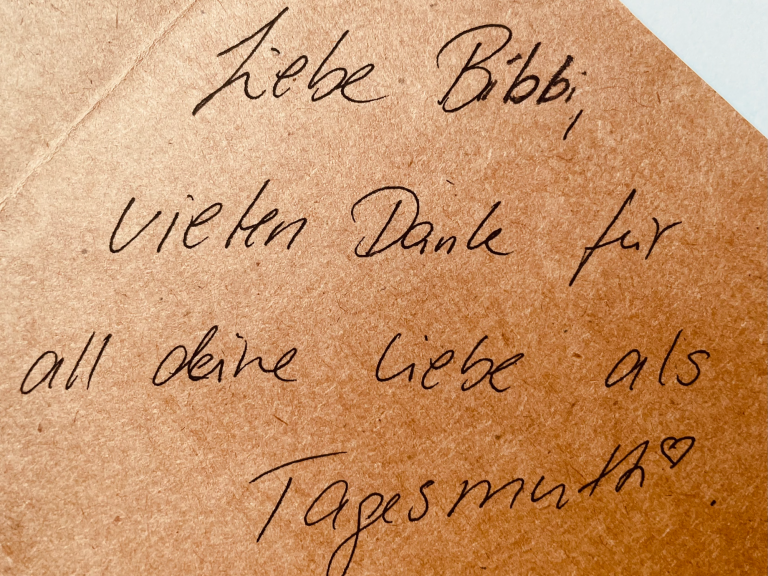 Liebe Bibbi,
vielen Dank für
all deine Liebe als
Tagesmutti.